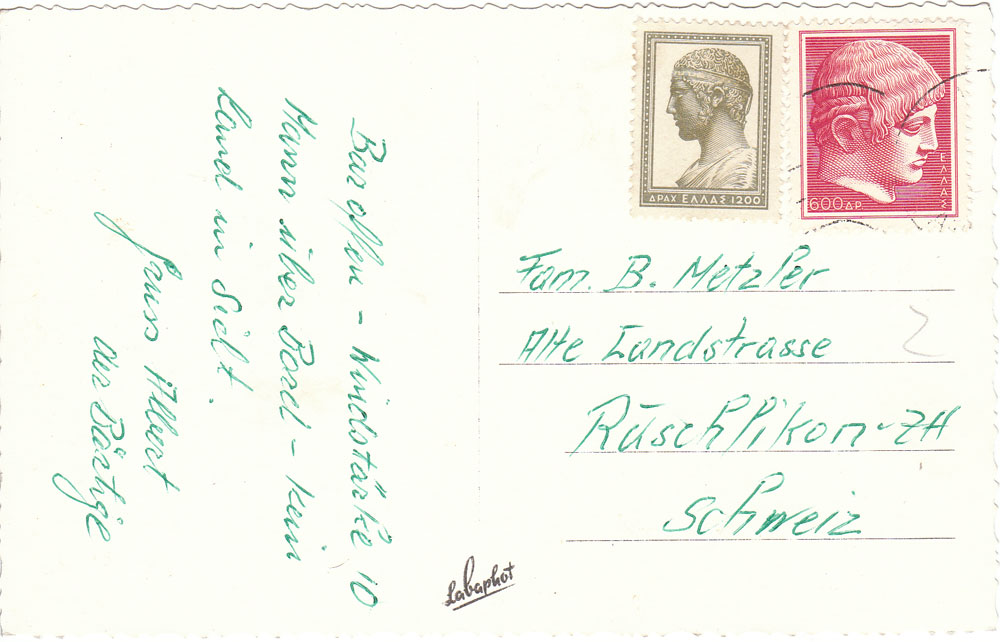 Bar offen – Windstärke 10
Mann über Bord – kein
Land in Sicht.
Gruss Albert
der Bärtige
ΔΡΑΧ ΕΛΛΑΣ 1200
600 ΔΡ.
ΕΛΛΑΣ
Fam. B. Metzler
Alte Landstrasse
Rüschlikon-ZH
Schweiz
Labaphot